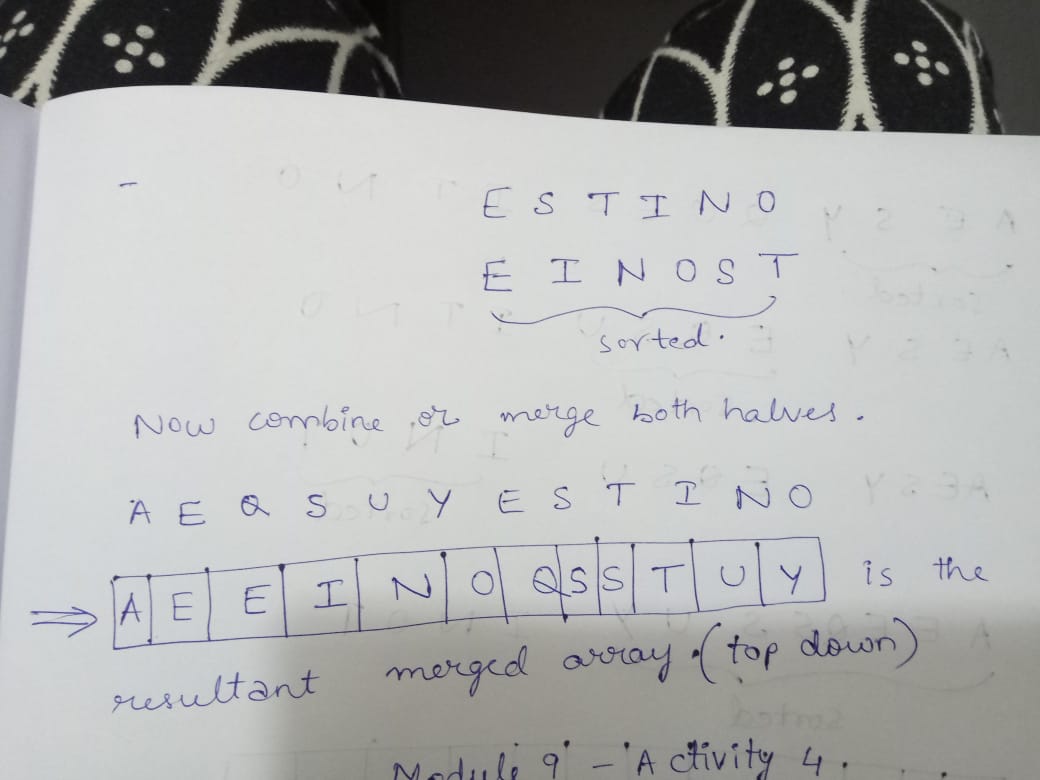 E S T I N O
E I N O S T
sorted.
Now combine or merge both halves.
A E Q S U Y E S T I N O
⇒ A E E I N O Q S S T U Y is the
resultant merged array. (top down)
Module 9 - Activity 4.